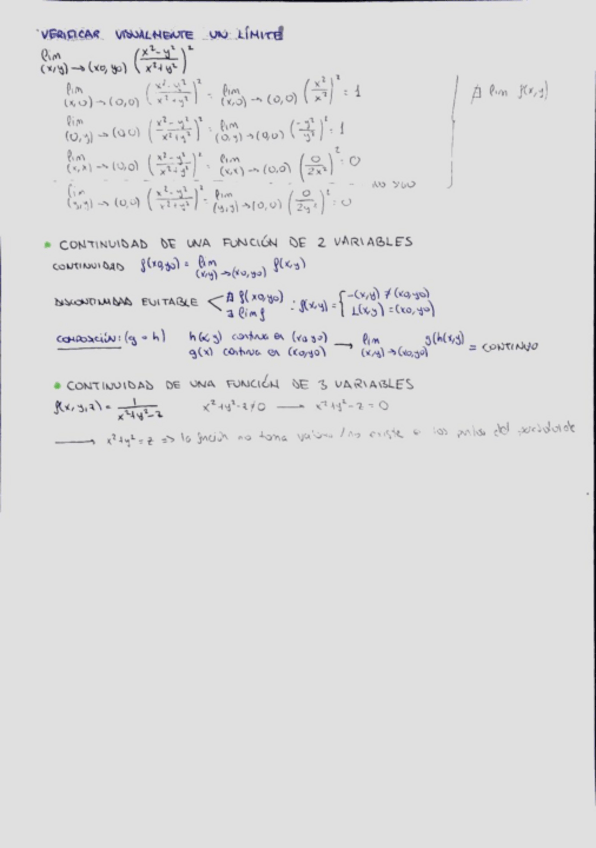 VERIFICAR VISUALMENTE UN LÍMITE
lim (x,y)→(x0,y0) ((x²-y²)/(x²+y²))²
lim (x,0)→(0,0) ((x²-y²)/(x²+y²))² = lim (x,0)→(0,0) (x²/x²)² = 1
lim (0,y)→(0,0) ((x²-y²)/(x²+y²))² = lim (0,y)→(0,0) (-y²/y²)² = 1
∄ lim f(x,y)
lim (x,x)→(0,0) ((x²-y²)/(x²+y²))² = lim (x,x)→(0,0) (0/2x²)² = 0
lim (y,y)→(0,0) ((x²-y²)/(x²+y²))² = lim (y,y)→(0,0) (0/2y²)² = 0
• CONTINUIDAD DE UNA FUNCIÓN DE 2 VARIABLES
CONTINUIDAD f(x0,y0) = lim (x,y)→(x0,y0) f(x,y)
DISCONTINUIDAD EVITABLE < ∄ f(x0,y0) ∃ lim f : f(x,y) = { -(x,y) ≠ (x0,y0) L(x,y) = (x0,y0)
COMPOSICIÓN: (g∘h) h(x,y) continua en (x0,y0) g(x) continua en (x0,y0) → lim (x,y)→(x0,y0) g(h(x,y)) = CONTINUO
• CONTINUIDAD DE UNA FUNCIÓN DE 3 VARIABLES
f(x,y,z) = 1/(x²+y²-z) x²+y²-z≠0 → x²+y²-z=0
→ x²+y²=z => la función no toma valores / no existe en los puntos del paraboloide